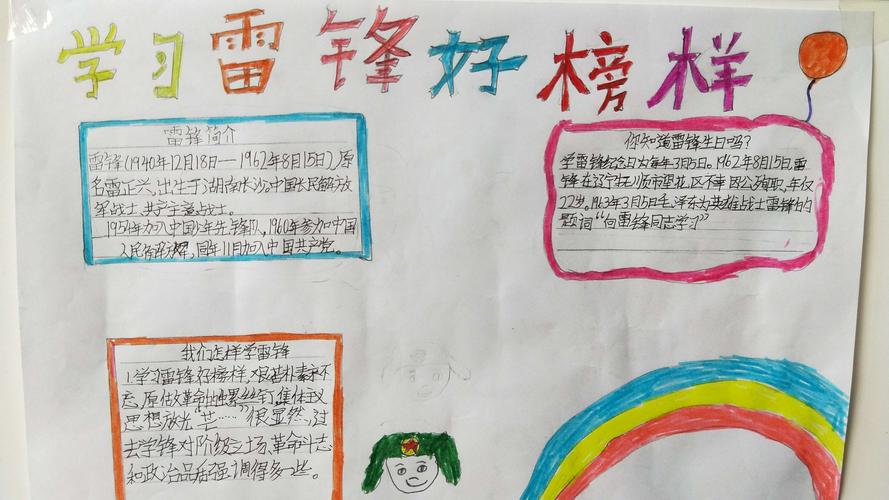 学习雷锋好榜样
雷锋简介
雷锋(1940年12月18日—1962年8月15日),原
名雷正兴,出生于湖南长沙。中国人民解放
军战士、共产主义战士。
1954年加入中国少年先锋队,1960年参加中国
人民解放军,同年11月加入中国共产党。
你知道雷锋生日吗?
学雷锋纪念日为每年3月5日。1962年8月15日,雷
锋在辽宁抚顺市望花区不幸因公殉职,年仅
22岁。1963年3月5日毛泽东为英雄战士雷锋的
题词“向雷锋同志学习”
我们怎样学雷锋
1.学习雷锋好榜样,艰苦朴素永不
忘,愿做革命的螺丝钉,集体主义
思想放光“芒……”很显然,过
去学锋对阶级立场、革命斗志
和政治品质强调得多一些。